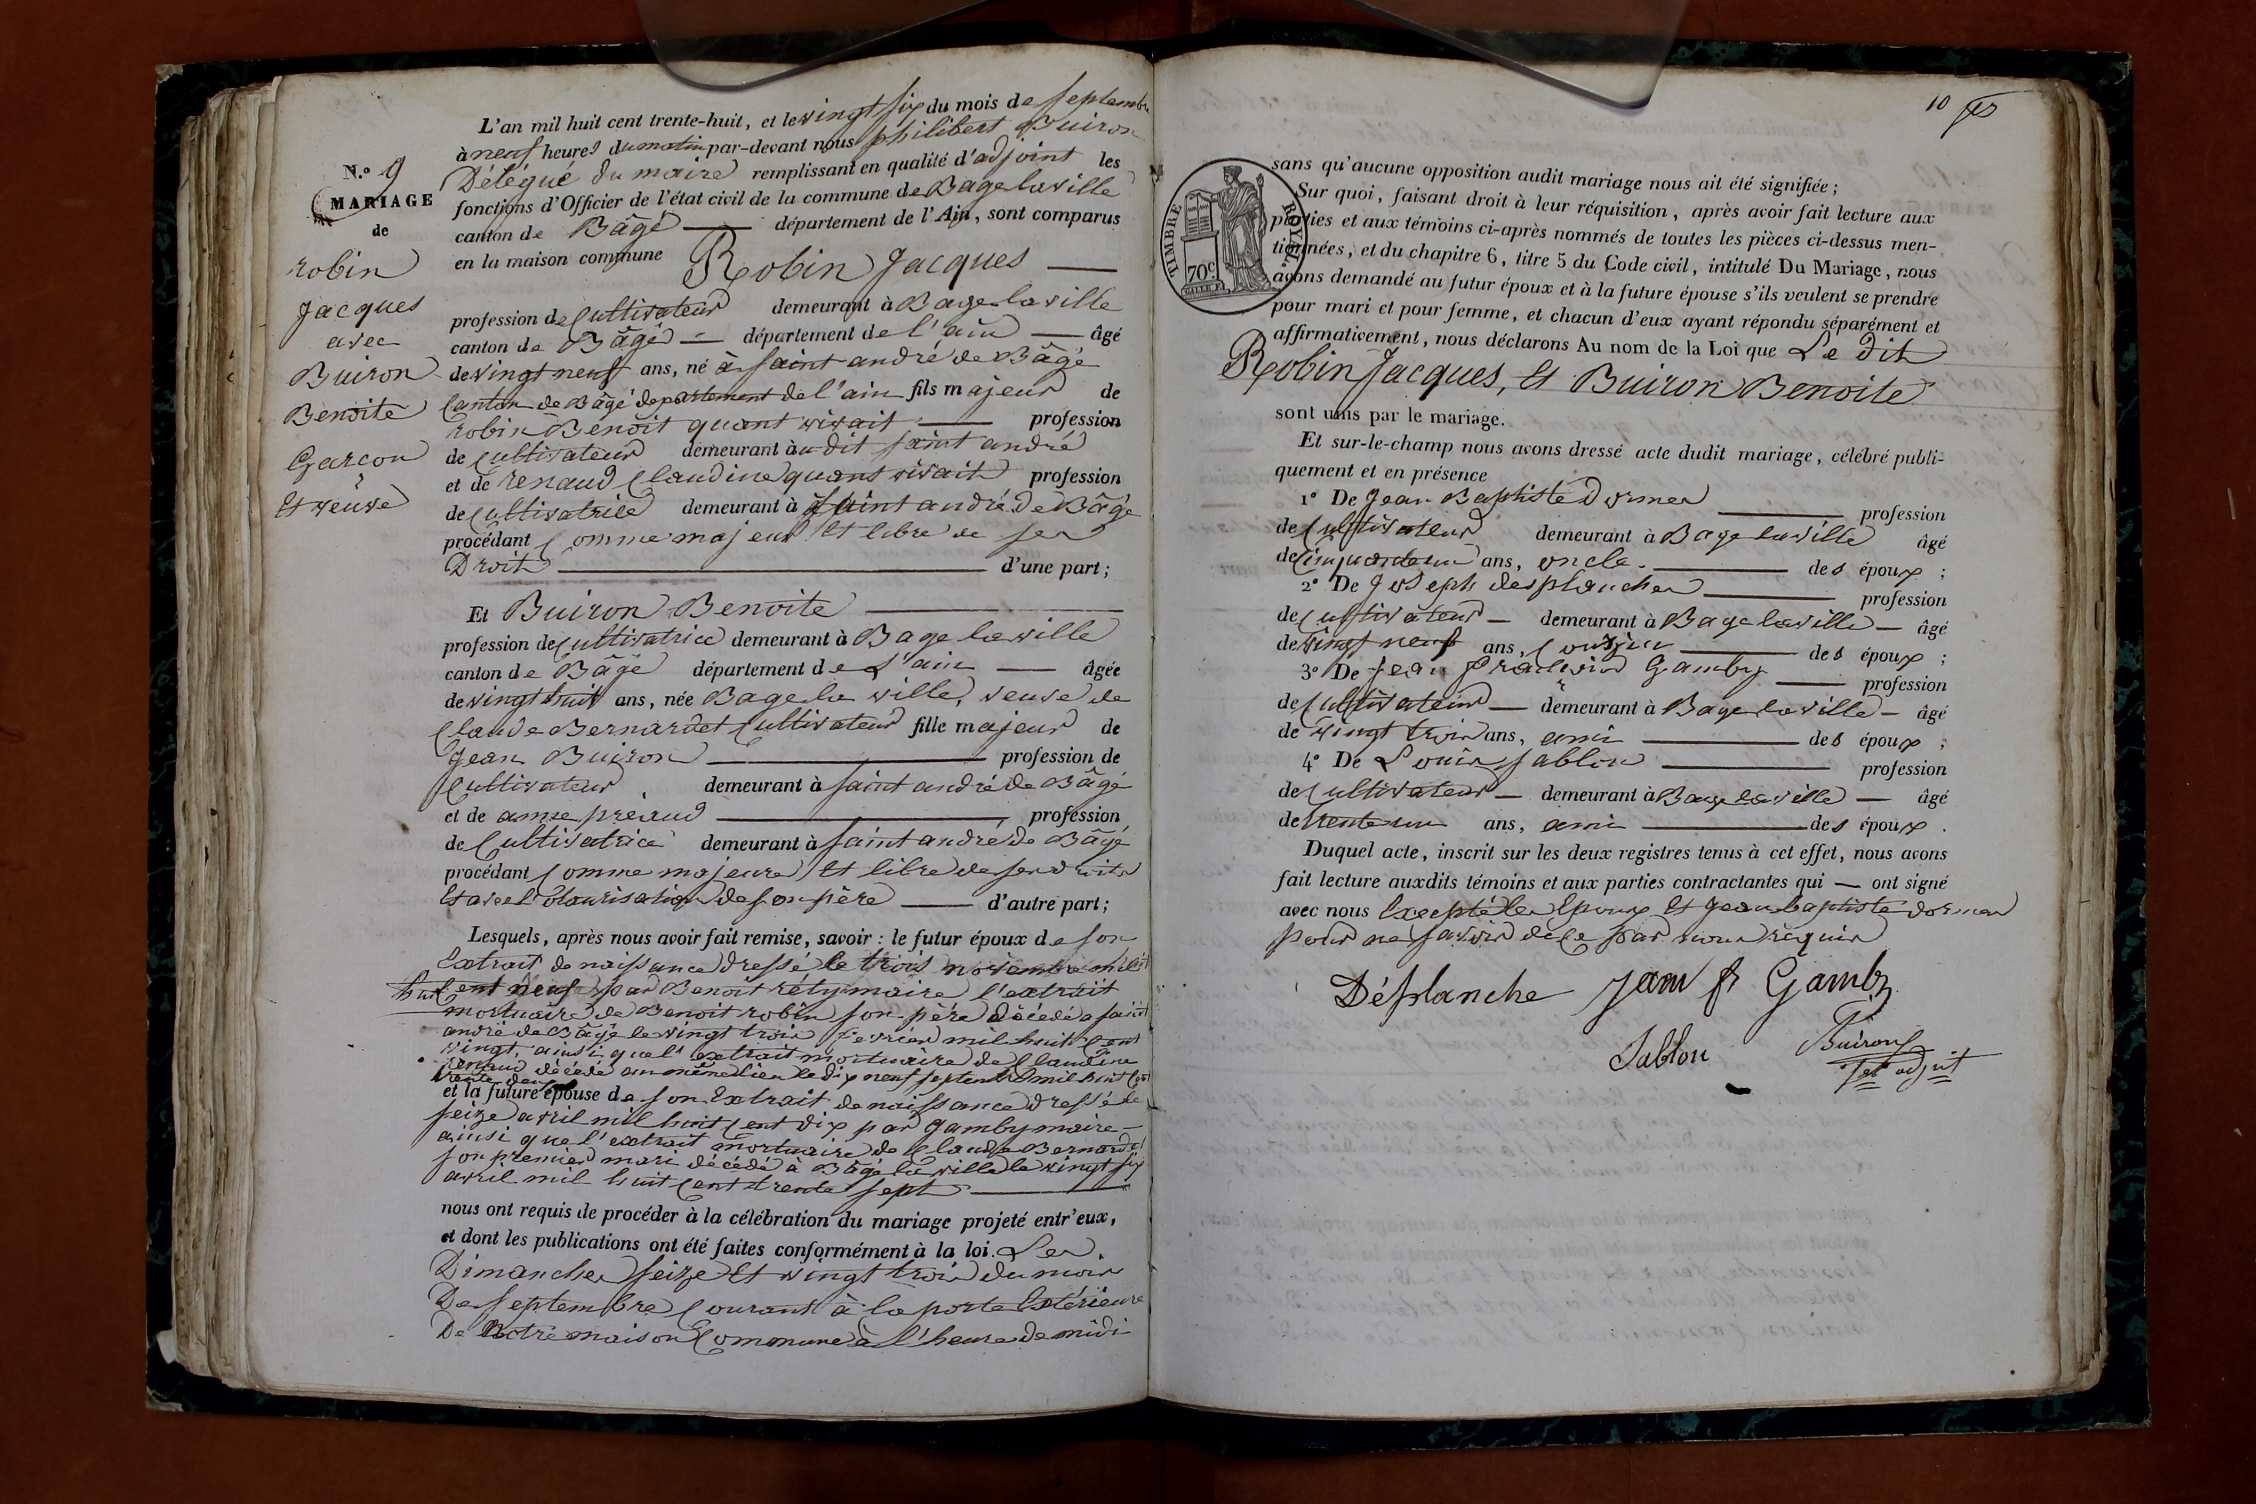 N.º 9
MARIAGE
de
robin
Jacques
avec
Buiron
Benoite
Garcon
et veuve
L'an mil huit cent trente-huit, et le vingt six du mois de septembre
à neuf heures du matin par-devant nous philibert Buiron
Délégué du maire remplissant en qualité d'adjoint les
fonctions d'Officier de l'état civil de la commune de Bage la ville
canton de Bâgé département de l'Ain, sont comparus
en la maison commune Robin Jacques
profession de Cultivateur demeurant à Bage la ville
canton de Bâgé département de l'ain âgé
de vingt neuf ans, né à saint andré de Bâgé
Canton de Bâgé département de l'ain fils majeur de
robin Benoit quant vivait profession
de Cultivateur demeurant à u dit saint andré
et de renaud Claudine quant vivait profession
de Cultivatrice demeurant à saint andré de Bâgé
procédant Comme majeur et libre de ses
Droits d'une part;
Et Buiron Benoite
profession de Cultivatrice demeurant à Bage la ville
canton de Bâgé département de L'ain âgée
de vingt huit ans, née Bage la ville, veuve de
Claude Bernardet Cultivateur fille majeur de
Jean Buiron profession de
Cultivateur demeurant à saint andré de Bâgé
et de anne preaud profession
de Cultivatrice demeurant à saint andré de Bâgé
procédant Comme majeure et libre de ses droits
Et avec l'otaurisation de son père d'autre part;
Lesquels, après nous avoir fait remise, savoir : le futur époux de son
Extrait de naissance dressé le trois novembre mil
huit cent neuf par Benoit réty maire l'extrait
mortuaire de Benoit robin son père décédé a saint
andré de Bâgé le vingt trois fevrier mil huit Cent
vingt, ainsi que l'extrait mortuaire de Claudine
renaud décédé au même lieu le dix neuf septembre mil huit Cent
trente deux
et la future épouse de son Extrait de naissance dressé le
seize avril mil huit Cent dix par gamby maire
ainsi que l'extrait mortuaire de Claude Bernardet
son premier mari décédé à Bâgé la ville le vingt six
avril mil huit Cent trente sept
nous ont requis de procéder à la célébration du mariage projeté entr'eux,
et dont les publications ont été faites conformément à la loi. Les
Dimanches seize Et vingt trois du mois
De septembre Courant à la porte Extérieure
De Notre maison Commune à l'heure de midi
10
TIMBRE ROYAL
70 c.
sans qu'aucune opposition audit mariage nous ait été signifiée;
Sur quoi, faisant droit à leur réquisition, après avoir fait lecture aux
parties et aux témoins ci-après nommés de toutes les pièces ci-dessus men-
tionnées, et du chapitre 6, titre 5 du Code civil, intitulé Du Mariage, nous
avons demandé au futur époux et à la future épouse s'ils veulent se prendre
pour mari et pour femme, et chacun d'eux ayant répondu séparément et
affirmativement, nous déclarons Au nom de la Loi que Le dit
Robin Jacques, Et Buiron Benoite
sont unis par le mariage.
Et sur-le-champ nous avons dressé acte dudit mariage, célébré publi-
quement et en présence
1º De Jean Baptiste Dormes profession
de Cultivateur demeurant à Bage la ville âgé
de Cinquante un ans, oncle des époux;
2º De Joseph desplanches profession
de Cultivateur demeurant à Bage la ville âgé
de vingt neuf ans, Cousin des époux;
3º De Jean François Gamby profession
de Cultivateur demeurant à Bage la ville âgé
de vingt trois ans, ami des époux;
4º De Louis sablon profession
de Cultivateur demeurant à Bage la ville âgé
de trente un ans, ami des époux.
Duquel acte, inscrit sur les deux registres tenus à cet effet, nous avons
fait lecture auxdits témoins et aux parties contractantes qui ont signé
avec nous Excepté les Epoux Et jean baptiste dormes
pour ne savoir de ce par nous requis
Déplanche Jean f Gamby
Sablon Buiron
adjoit